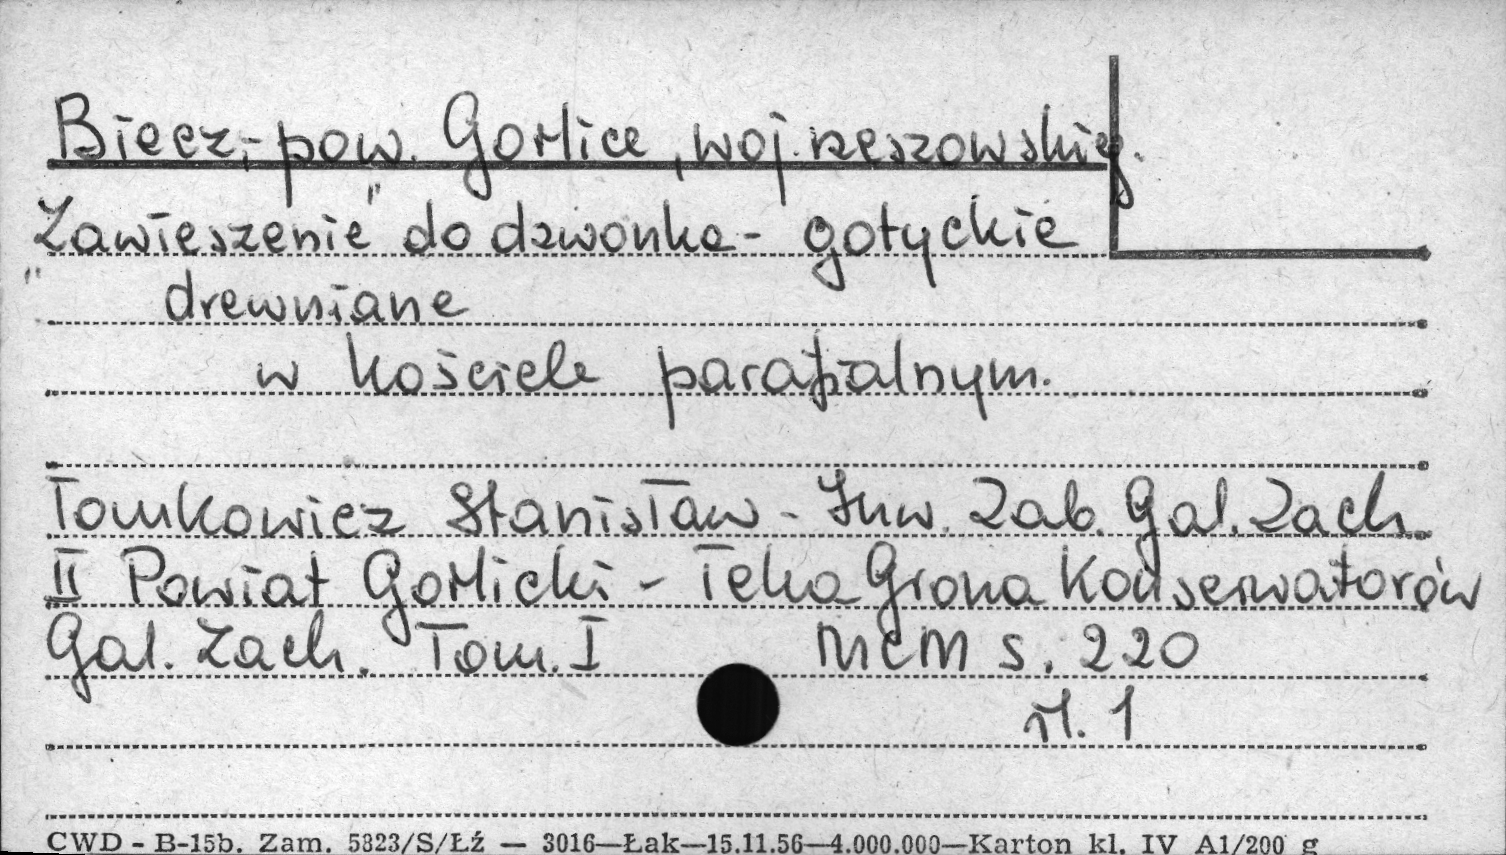 Biecz,- pow. Gorlice, woj. rzeszowskie.
"Zawieszenie" do dzwonka - gotyckie
drewniane
w kościele parafialnym.
Tomkowicz Stanisław - Inw. Zab. Gal. Zach.
II Powiat Gorlicki - Teka Grona Konserwatorów
Gal. Zach. Tom. I MCM s. 220
il. 1
CWD - B-15b. Zam. 5823/S/Łź — 3016—Łak—15.11.56—4.000.000—Karton kl. IV A1/200 g